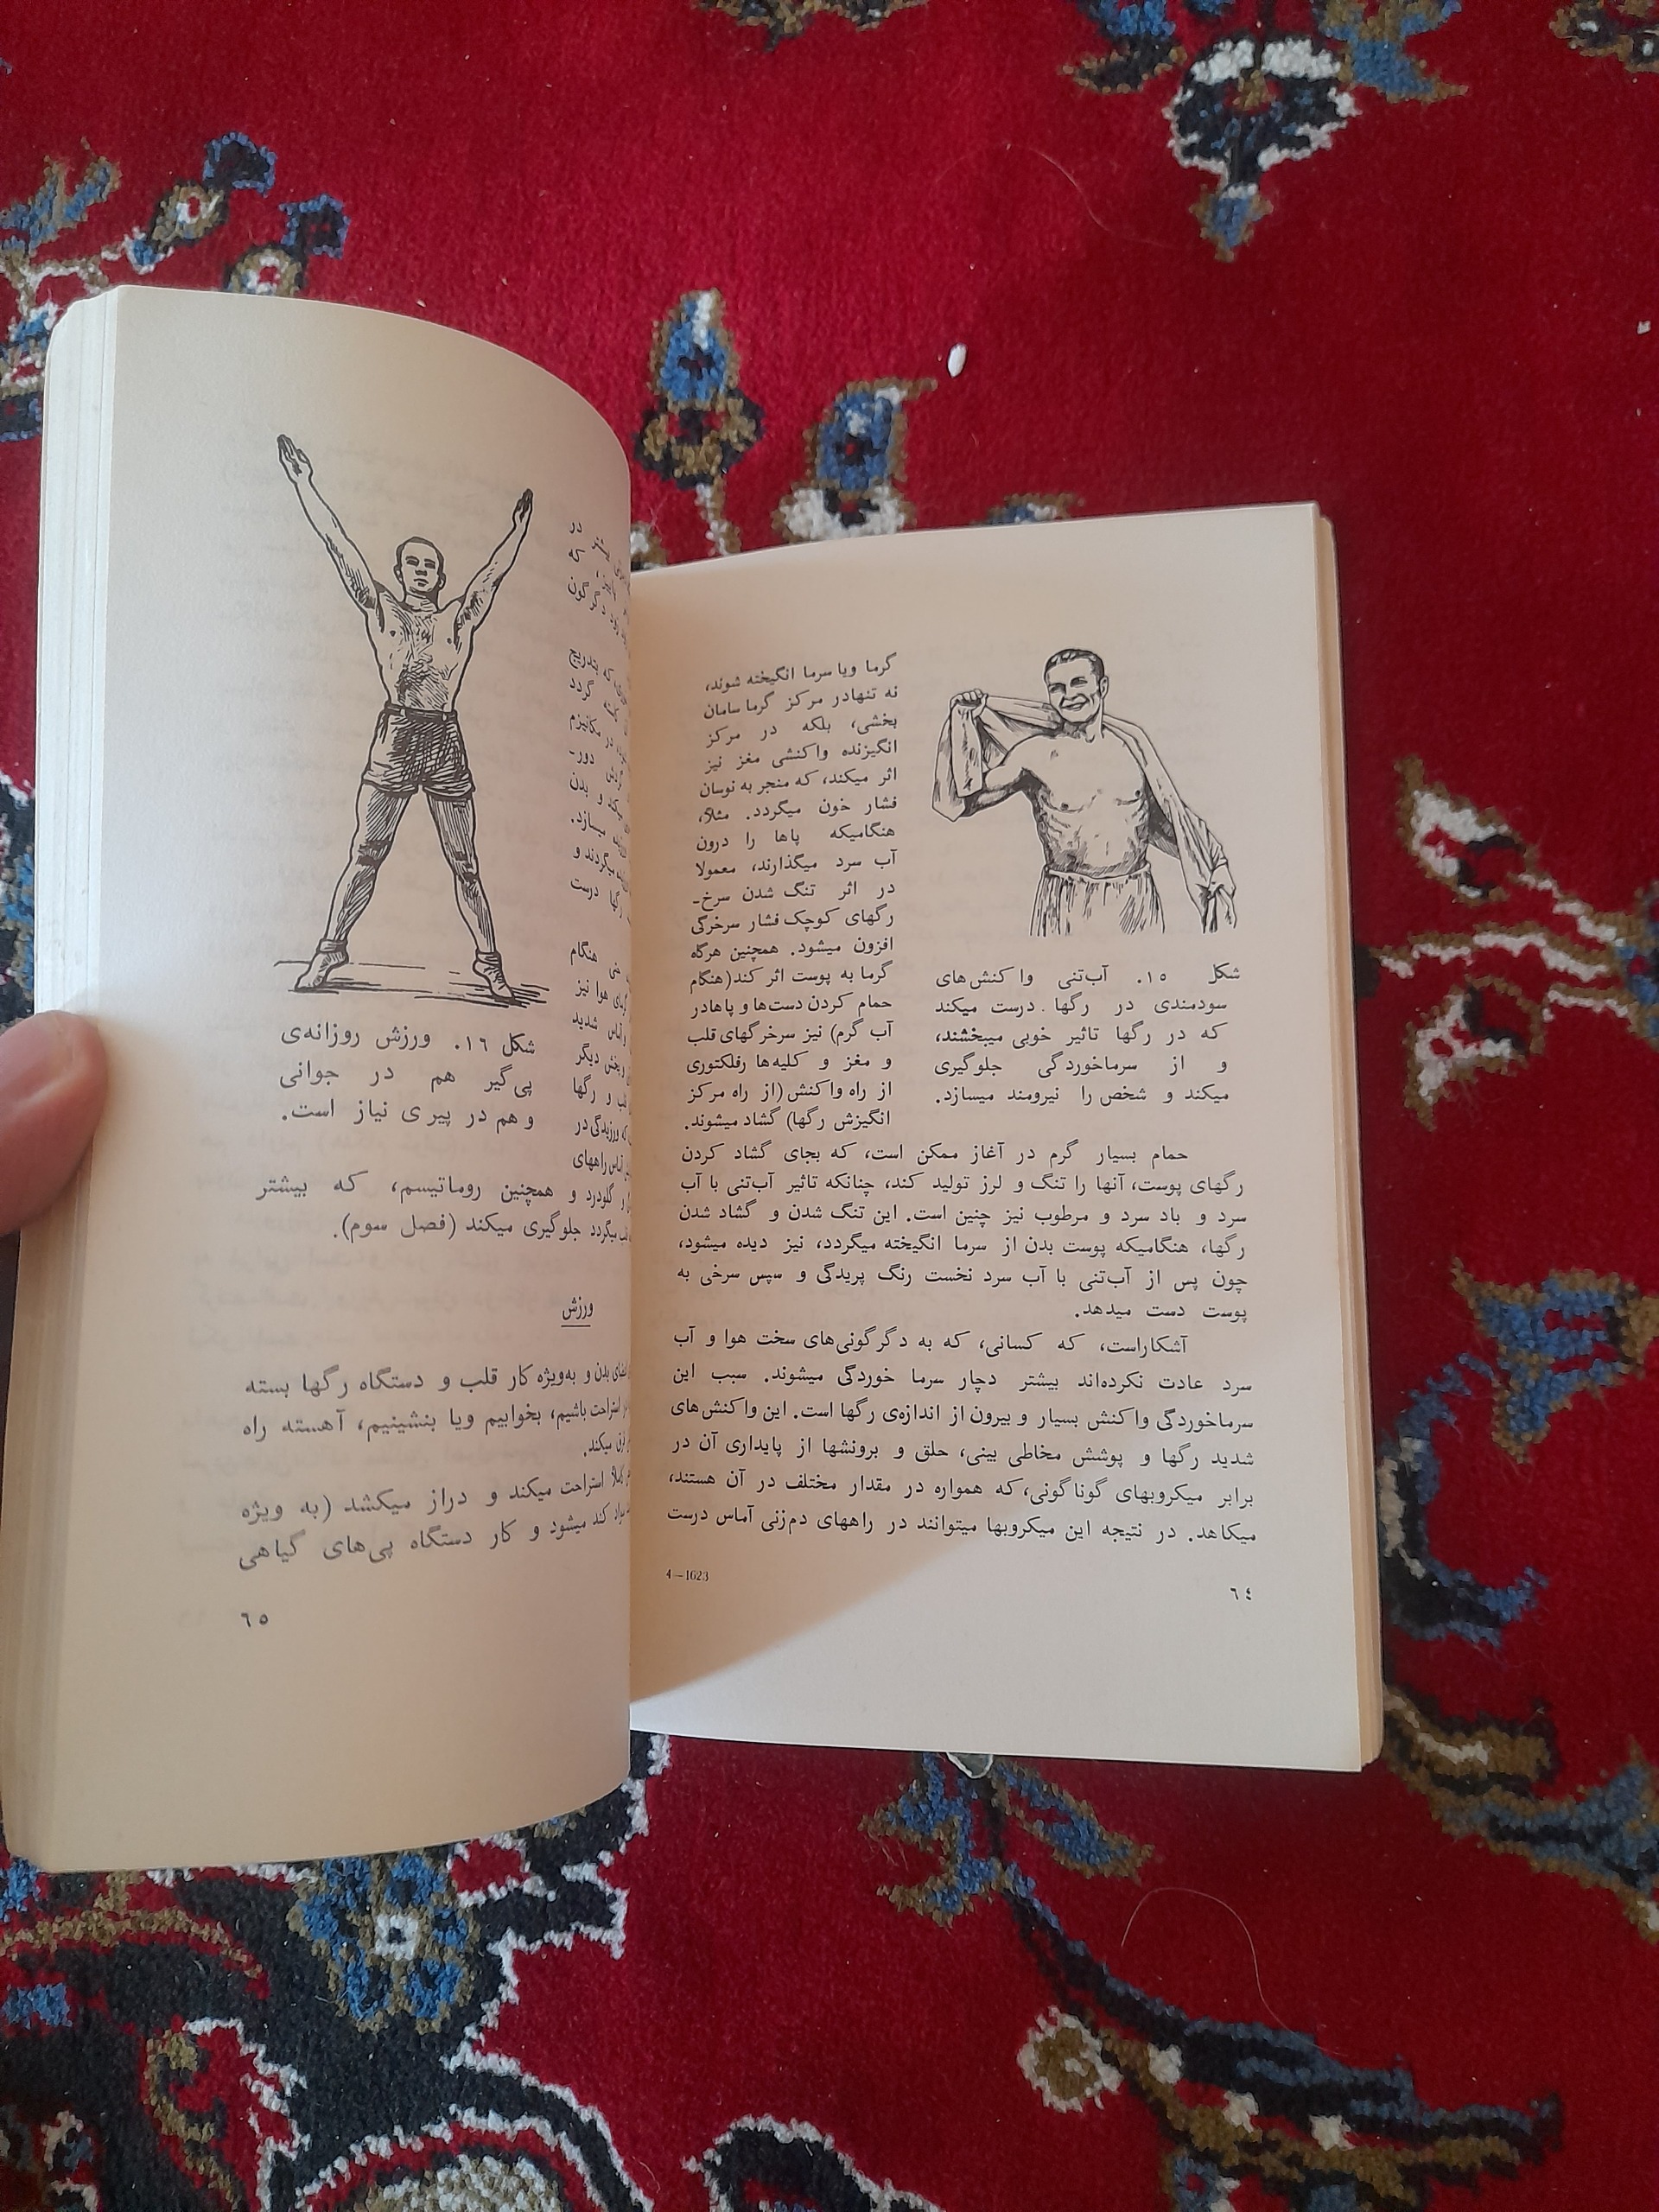 گرما ویا سرما انگیخته شوند،
نه تنهادر مرکز گرما سامان
بخشی، بلکه در مرکز
انگیزنده واکنشی مغز نیز
اثر میکند، که منجر به نوسان
فشار خون میگردد. مثلا،
هنگامیکه پاها را درون
آب سرد میگذارند، معمولا
در اثر تنگ شدن سرخ-
رگهای کوچک فشار سرخرگی
افزون میشود. همچنین هرگاه
گرما به پوست اثر کند(هنگام
حمام کردن دست‌ها و پاهادر
آب گرم) نیز سرخرگهای قلب
و مغز و کلیه‌ها رفلکتوری
از راه واکنش (از راه مرکز
انگیزش رگها) گشاد میشوند.
شکل ۱۵. آب‌تنی واکنش‌های
سودمندی در رگها درست میکند
که در رگها تاثیر خوبی میبخشند،
و از سرماخوردگی جلوگیری
میکند و شخص را نیرومند میسازد.
حمام بسیار گرم در آغاز ممکن است، که بجای گشاد کردن
رگهای پوست، آنها را تنگ و لرز تولید کند، چنانکه تاثیر آب‌تنی با آب
سرد و باد سرد و مرطوب نیز چنین است. این تنگ شدن و گشاد شدن
رگها، هنگامیکه پوست بدن از سرما انگیخته میگردد، نیز دیده میشود،
چون پس از آب‌تنی با آب سرد نخست رنگ پریدگی و سپس سرخی به
پوست دست میدهد.
آشکاراست، که کسانی، که به دگرگونی‌های سخت هوا و آب
سرد عادت نکرده‌اند بیشتر دچار سرما خوردگی میشوند. سبب این
سرماخوردگی واکنش بسیار و بیرون از اندازه‌ی رگها است. این واکنش‌های
شدید رگها و پوشش مخاطی بینی، حلق و برونشها از پایداری آن در
برابر میکروبهای گوناگونی، که همواره در مقدار مختلف در آن هستند،
میکاهد. در نتیجه این میکروبها میتوانند در راههای دم‌زنی آماس درست
4—1623
٦٤
در
که
دگرگون
که بتدریج
گردد
در مکانیزم
دور-
و بدن
میسازد.
میگردند و
رگها درست
هنگام
هوا نیز
آماس شدید
بخش دیگر
و رگها
که ورزیدگی در
آماس راههای
شکل ۱٦. ورزش روزانه‌ی
پی‌گیر هم در جوانی
و هم در پیری نیاز است.
و گلودرد و همچنین روماتیسم، که بیشتر
میگردد جلوگیری میکند (فصل سوم).
ورزش
بدن و به‌ویژه کار قلب و دستگاه رگها بسته
استراحت باشیم، بخوابیم ویا بنشینیم، آهسته راه
فرق میکند.
کاملا استراحت میکند و دراز میکشد (به ویژه
کند میشود و کار دستگاه پی‌های گیاهی
٦٥